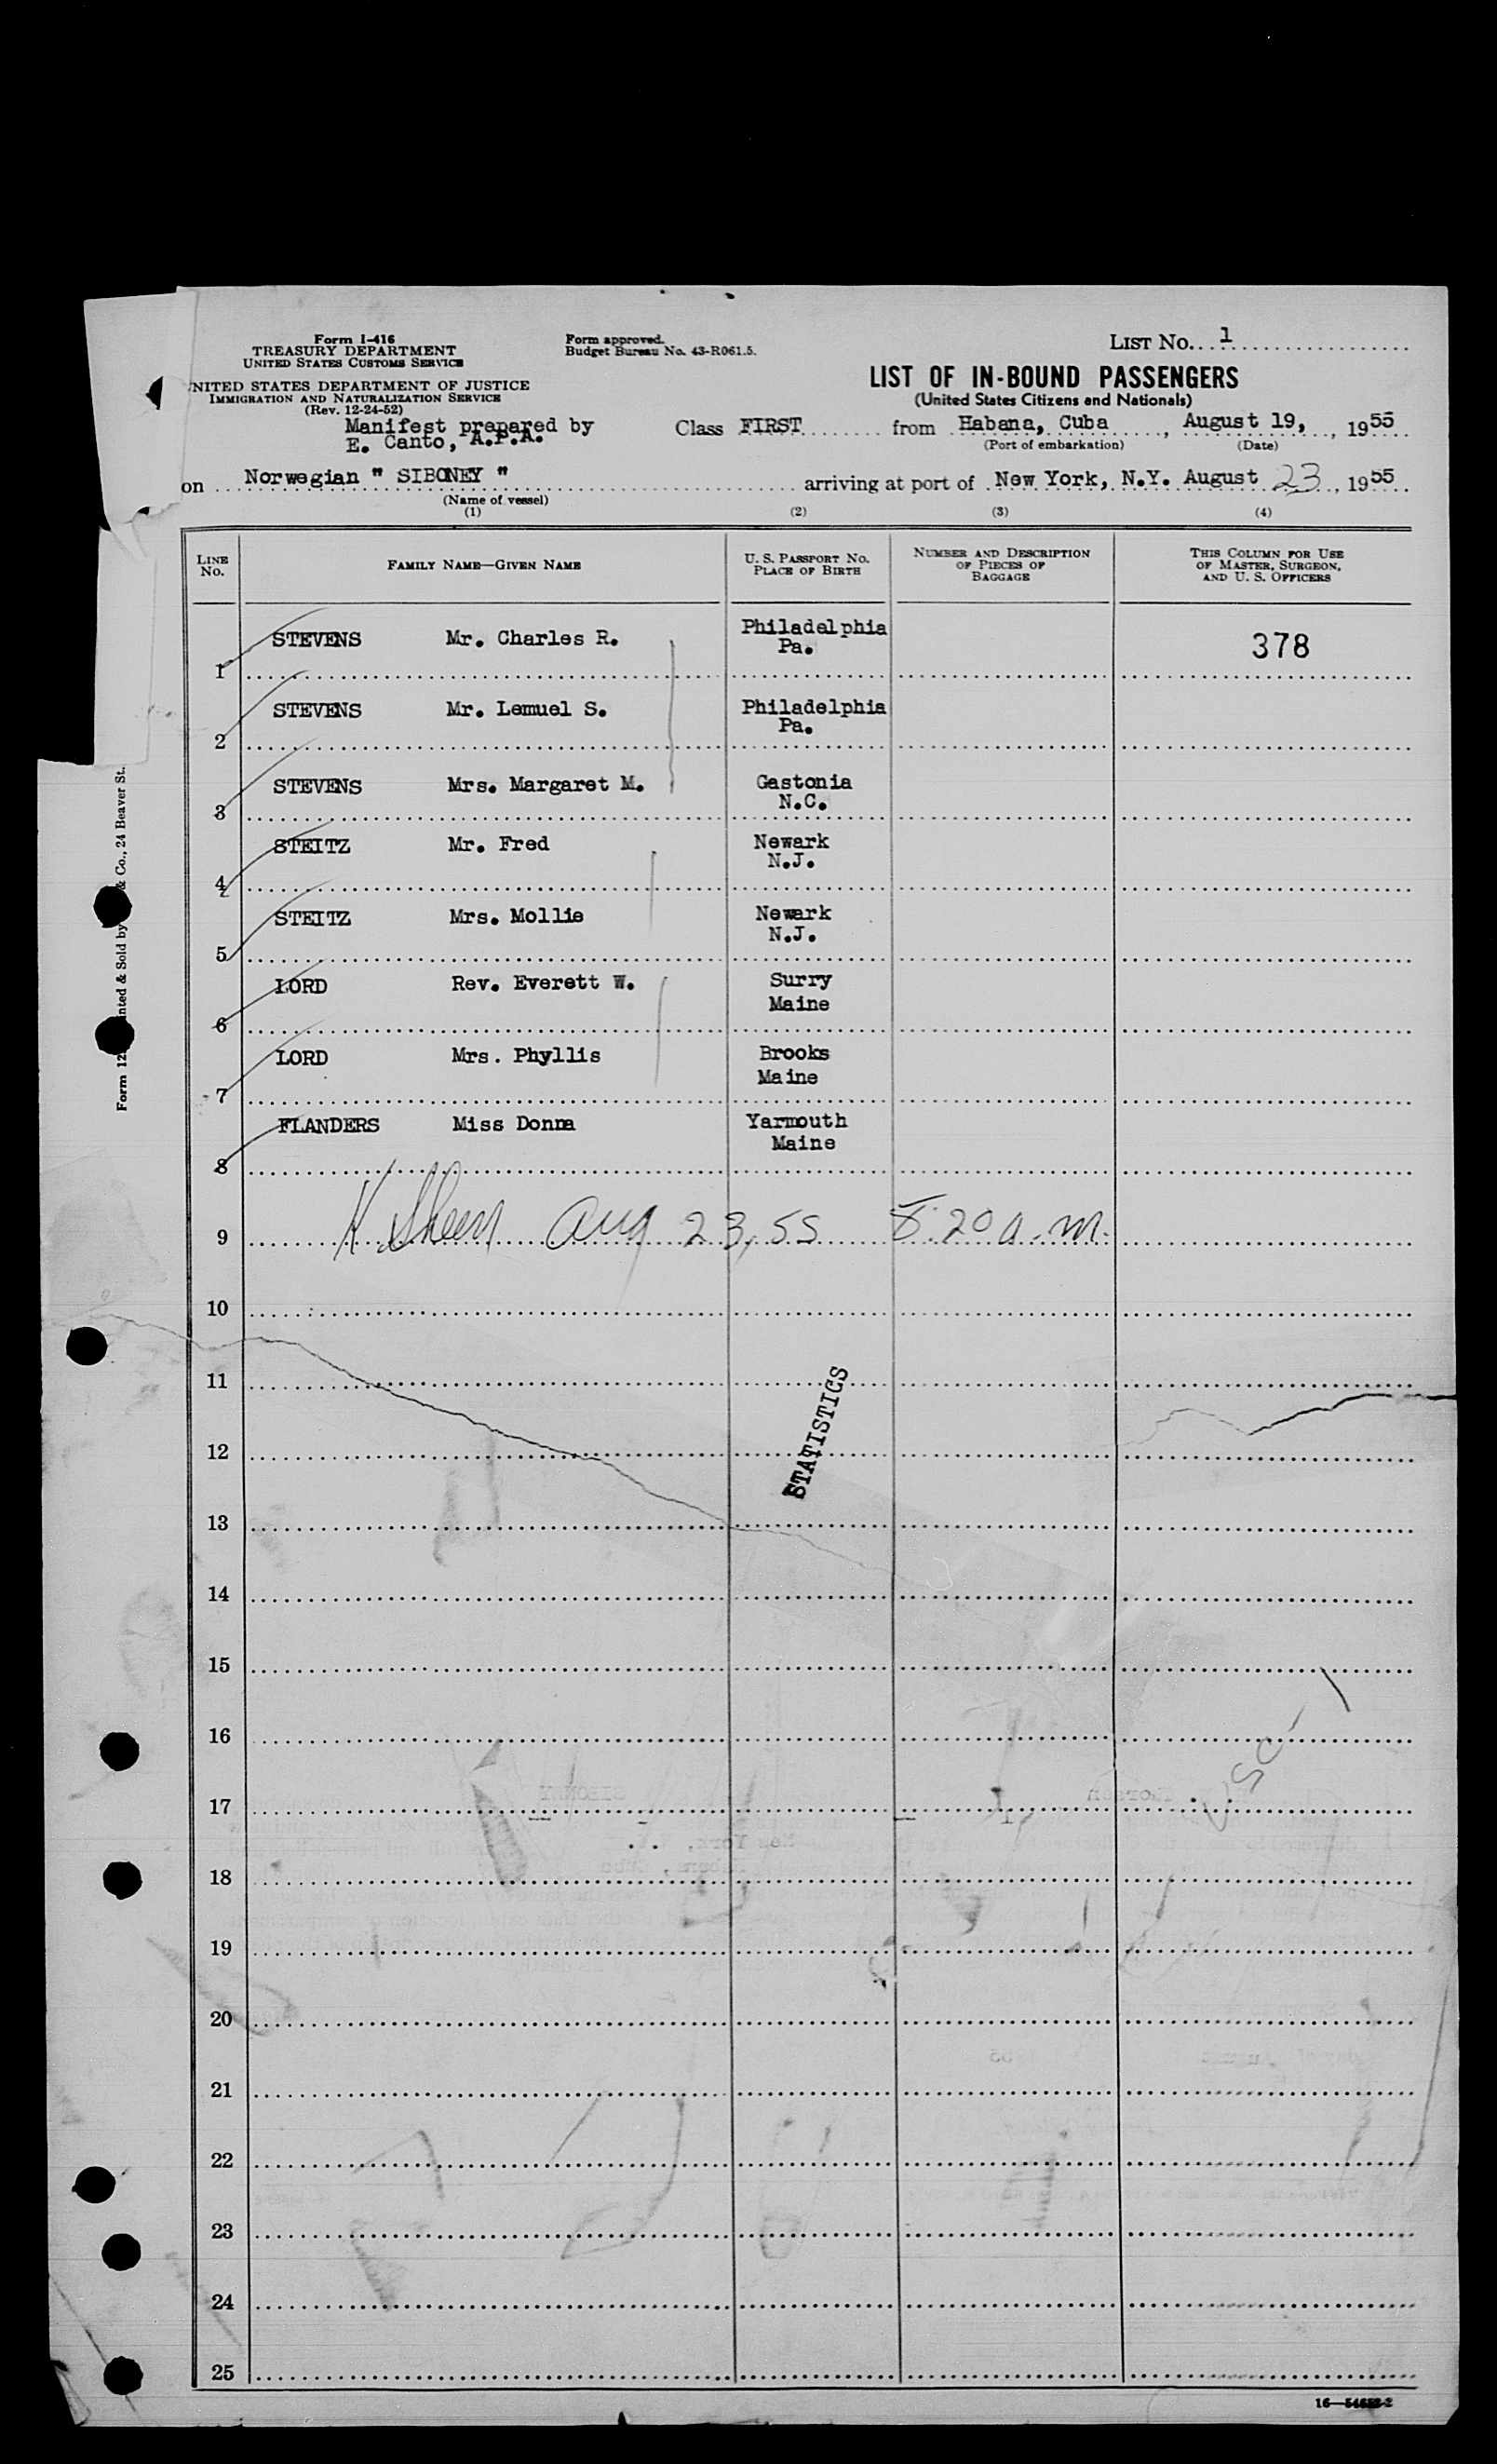 Form I-416
TREASURY DEPARTMENT
UNITED STATES CUSTOMS SERVICE
NITED STATES DEPARTMENT OF JUSTICE
IMMIGRATION AND NATURALIZATION SERVICE
(Rev. 12-24-52)
Form approved.
Budget Bureau No. 43-R061.5.
LIST No. 1
LIST OF IN-BOUND PASSENGERS
(United States Citizens and Nationals)
Manifest prepared by
E. Canto, A.P.A.
Class FIRST from Habana, Cuba, August 19, 1955
(Port of embarkation) (Date)
on Norwegian " SIBONEY " arriving at port of New York, N.Y. August 23, 1955
(Name of vessel)
(1) (2) (3) (4)
LINE No. FAMILY NAME—GIVEN NAME U. S. PASSPORT No. PLACE OF BIRTH NUMBER AND DESCRIPTION OF PIECES OF BAGGAGE THIS COLUMN FOR USE OF MASTER, SURGEON, AND U. S. OFFICERS
1 STEVENS Mr. Charles R. Philadelphia Pa. 378
2 STEVENS Mr. Lemuel S. Philadelphia Pa.
3 STEVENS Mrs. Margaret M. Gastonia N.C.
4 STEITZ Mr. Fred Newark N.J.
5 STEITZ Mrs. Mollie Newark N.J.
6 LORD Rev. Everett W. Surry Maine
7 LORD Mrs. Phyllis Brooks Maine
8 FLANDERS Miss Donna Yarmouth Maine
9 Aug 23, 55 8:20 a.m.
10
11
STATISTICS
12
13
14
15
16
USC
17
18
19
20
21
22
23
24
25
Form 12 nted & Sold by & Co., 24 Beaver St.